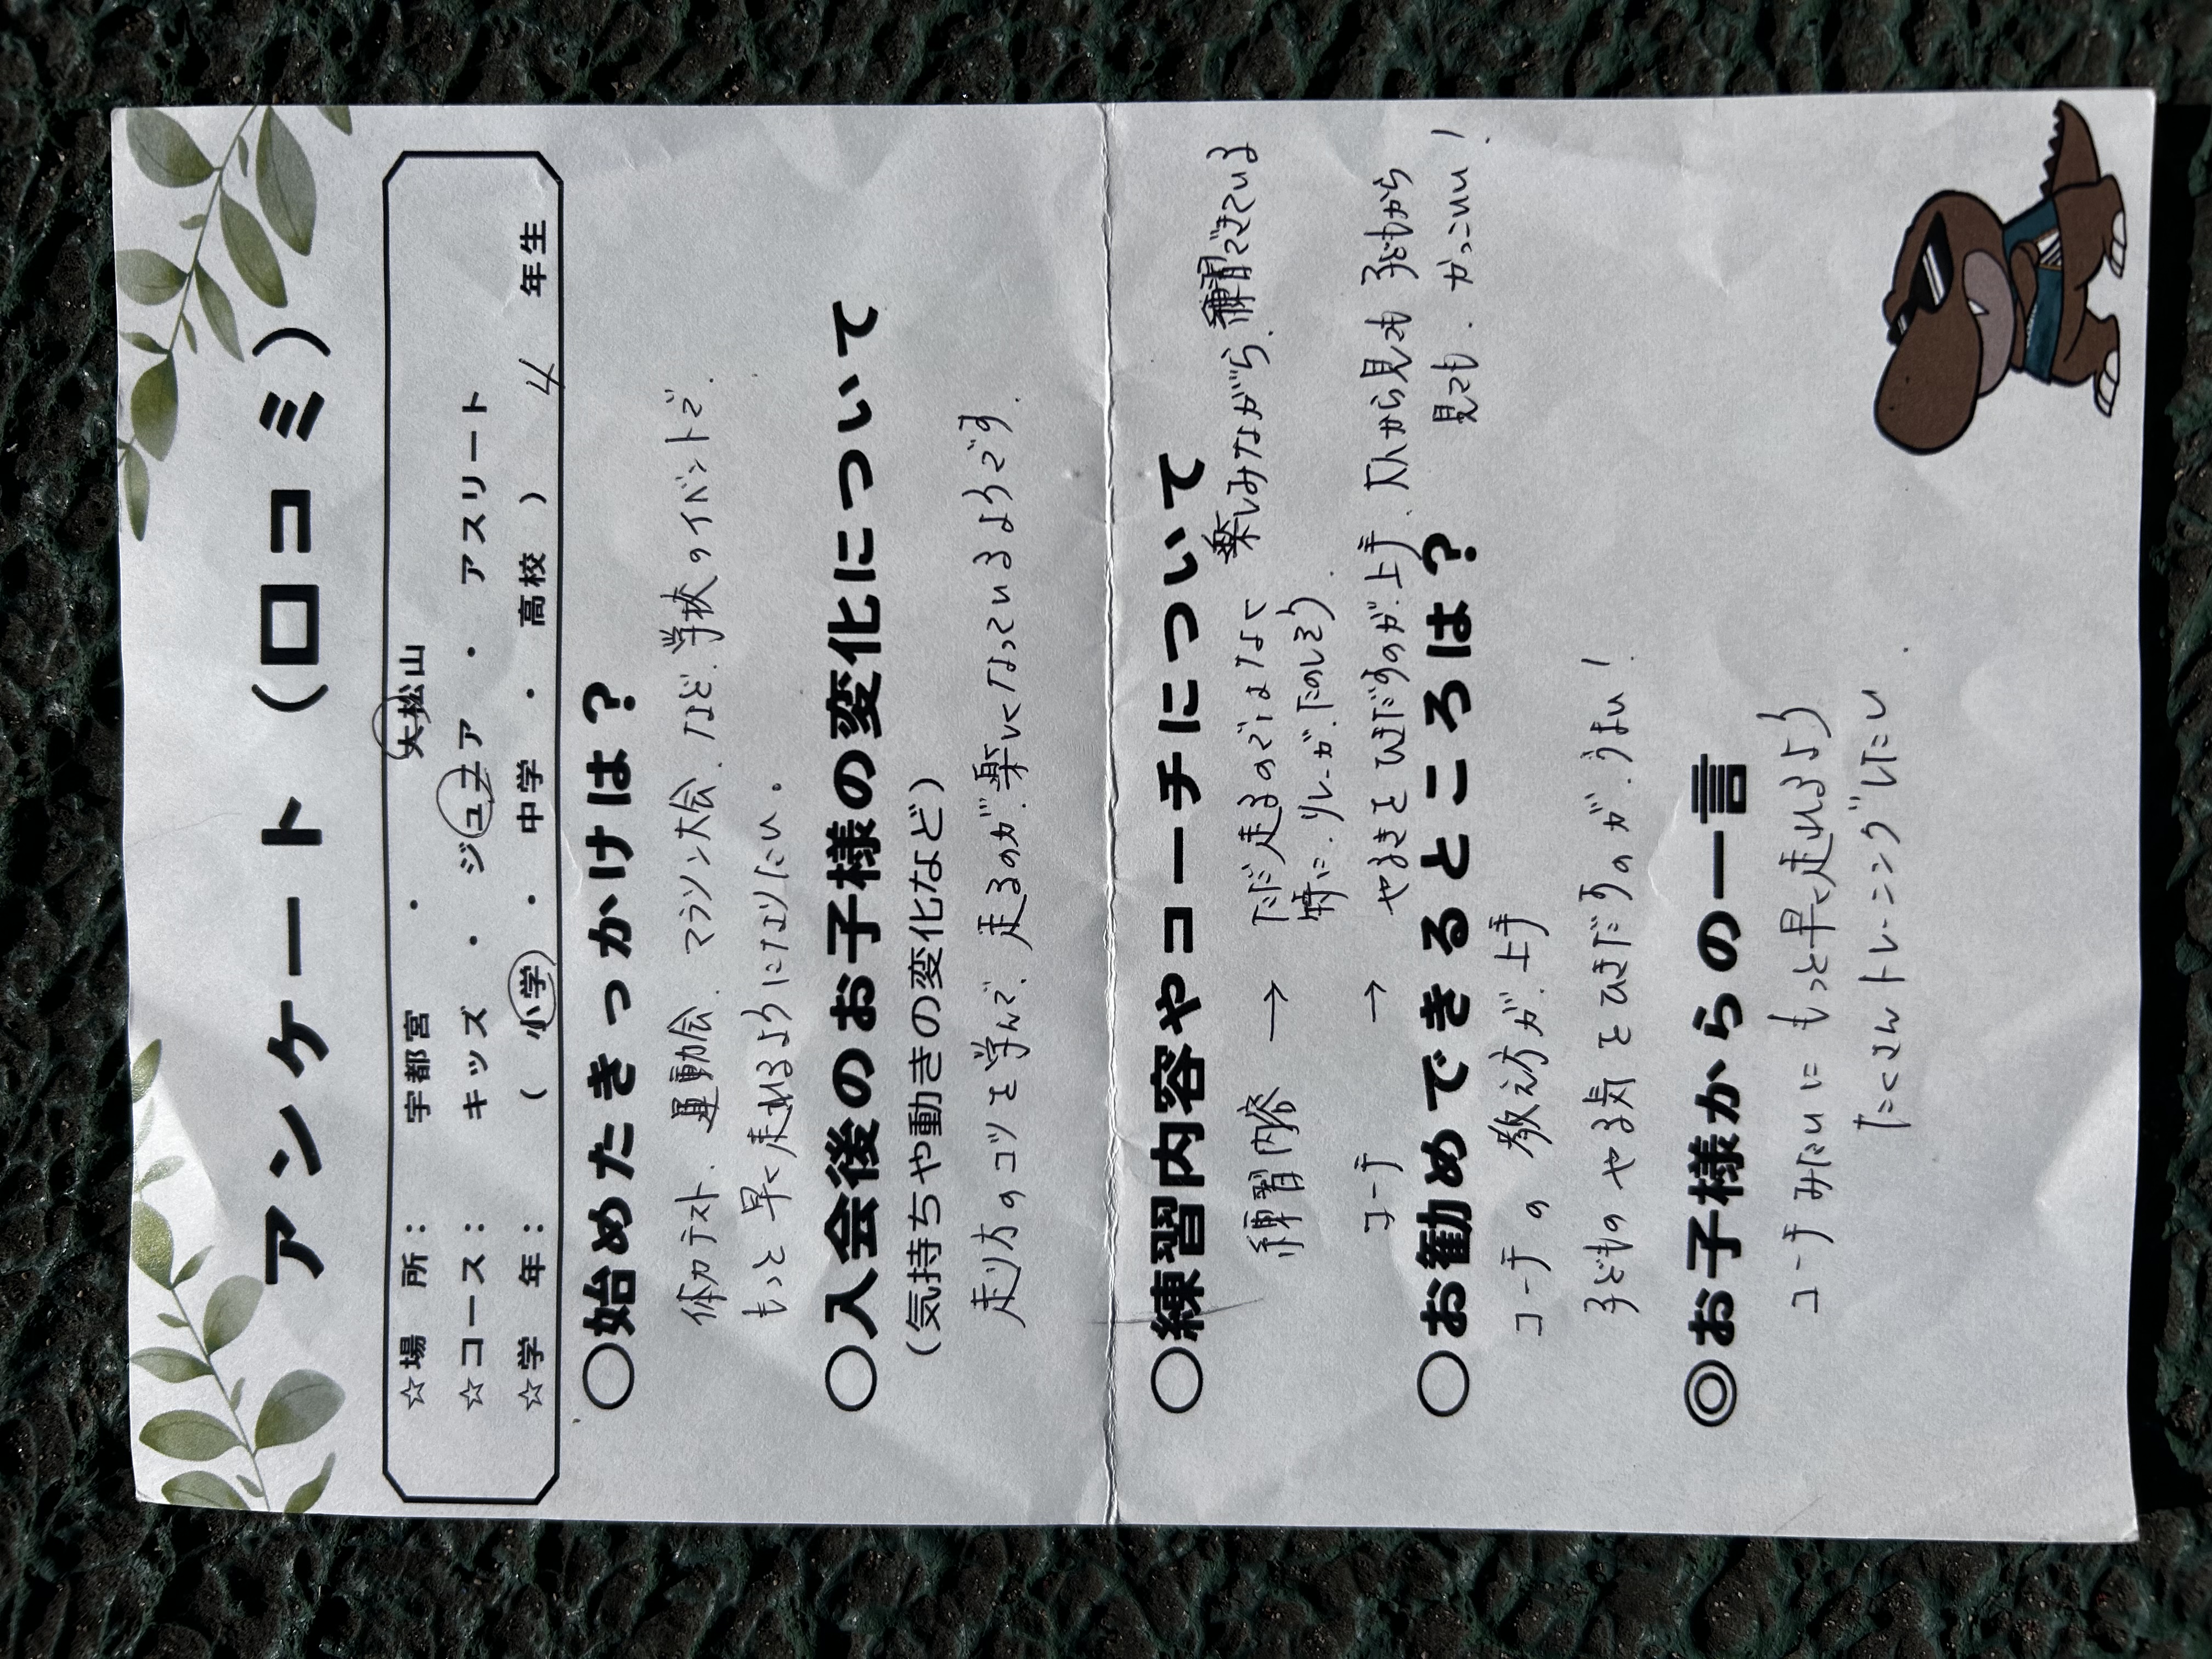 アンケート（口コミ）
☆場　所：　宇都宮　・　大松山
☆コース：　キッズ　・　ジュニア　・　アスリート
☆学　年：　（　小学　・　中学　・　高校　）　4　年生
○始めたきっかけは？
体力テスト、運動会、マラソン大会、など、学校のイベントで、
もっと早く走れるようになりたい。
○入会後のお子様の変化について
（気持ちや動きの変化など）
走り方のコツを学んで、走るのが、楽しくなっているようです.
○練習内容やコーチについて
練習内容 → ただ走るのではなく 楽しみながら、練習できている
特に、リレーが、たのしそう
コーチ → やるきをひきだすのが、上手、大人から見ても 子どもから
見ても、かっこいい！
○お勧めできるところは？
コーチの 教え方が、上手
子どもの やる気を ひきだすのが、うまい！
◎お子様からの一言
コーチみたいに もっと早く走れるよう
たくさんトレーニングしたい